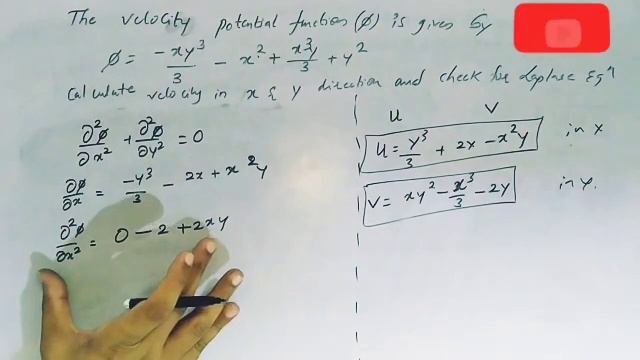 The velocity potential function (ϕ) is given by
ϕ = -xy³/3 - x² + x³y/3 + y²
Calculate velocity in x & y direction and check for Laplace Eqⁿ
∂²ϕ/∂x² + ∂²ϕ/∂y² = 0
∂ϕ/∂x = -y³/3 - 2x + x²y
∂²ϕ/∂x² = 0 - 2 + 2xy
u v
u = y³/3 + 2x - x²y in x
v = xy² - x³/3 - 2y in y.